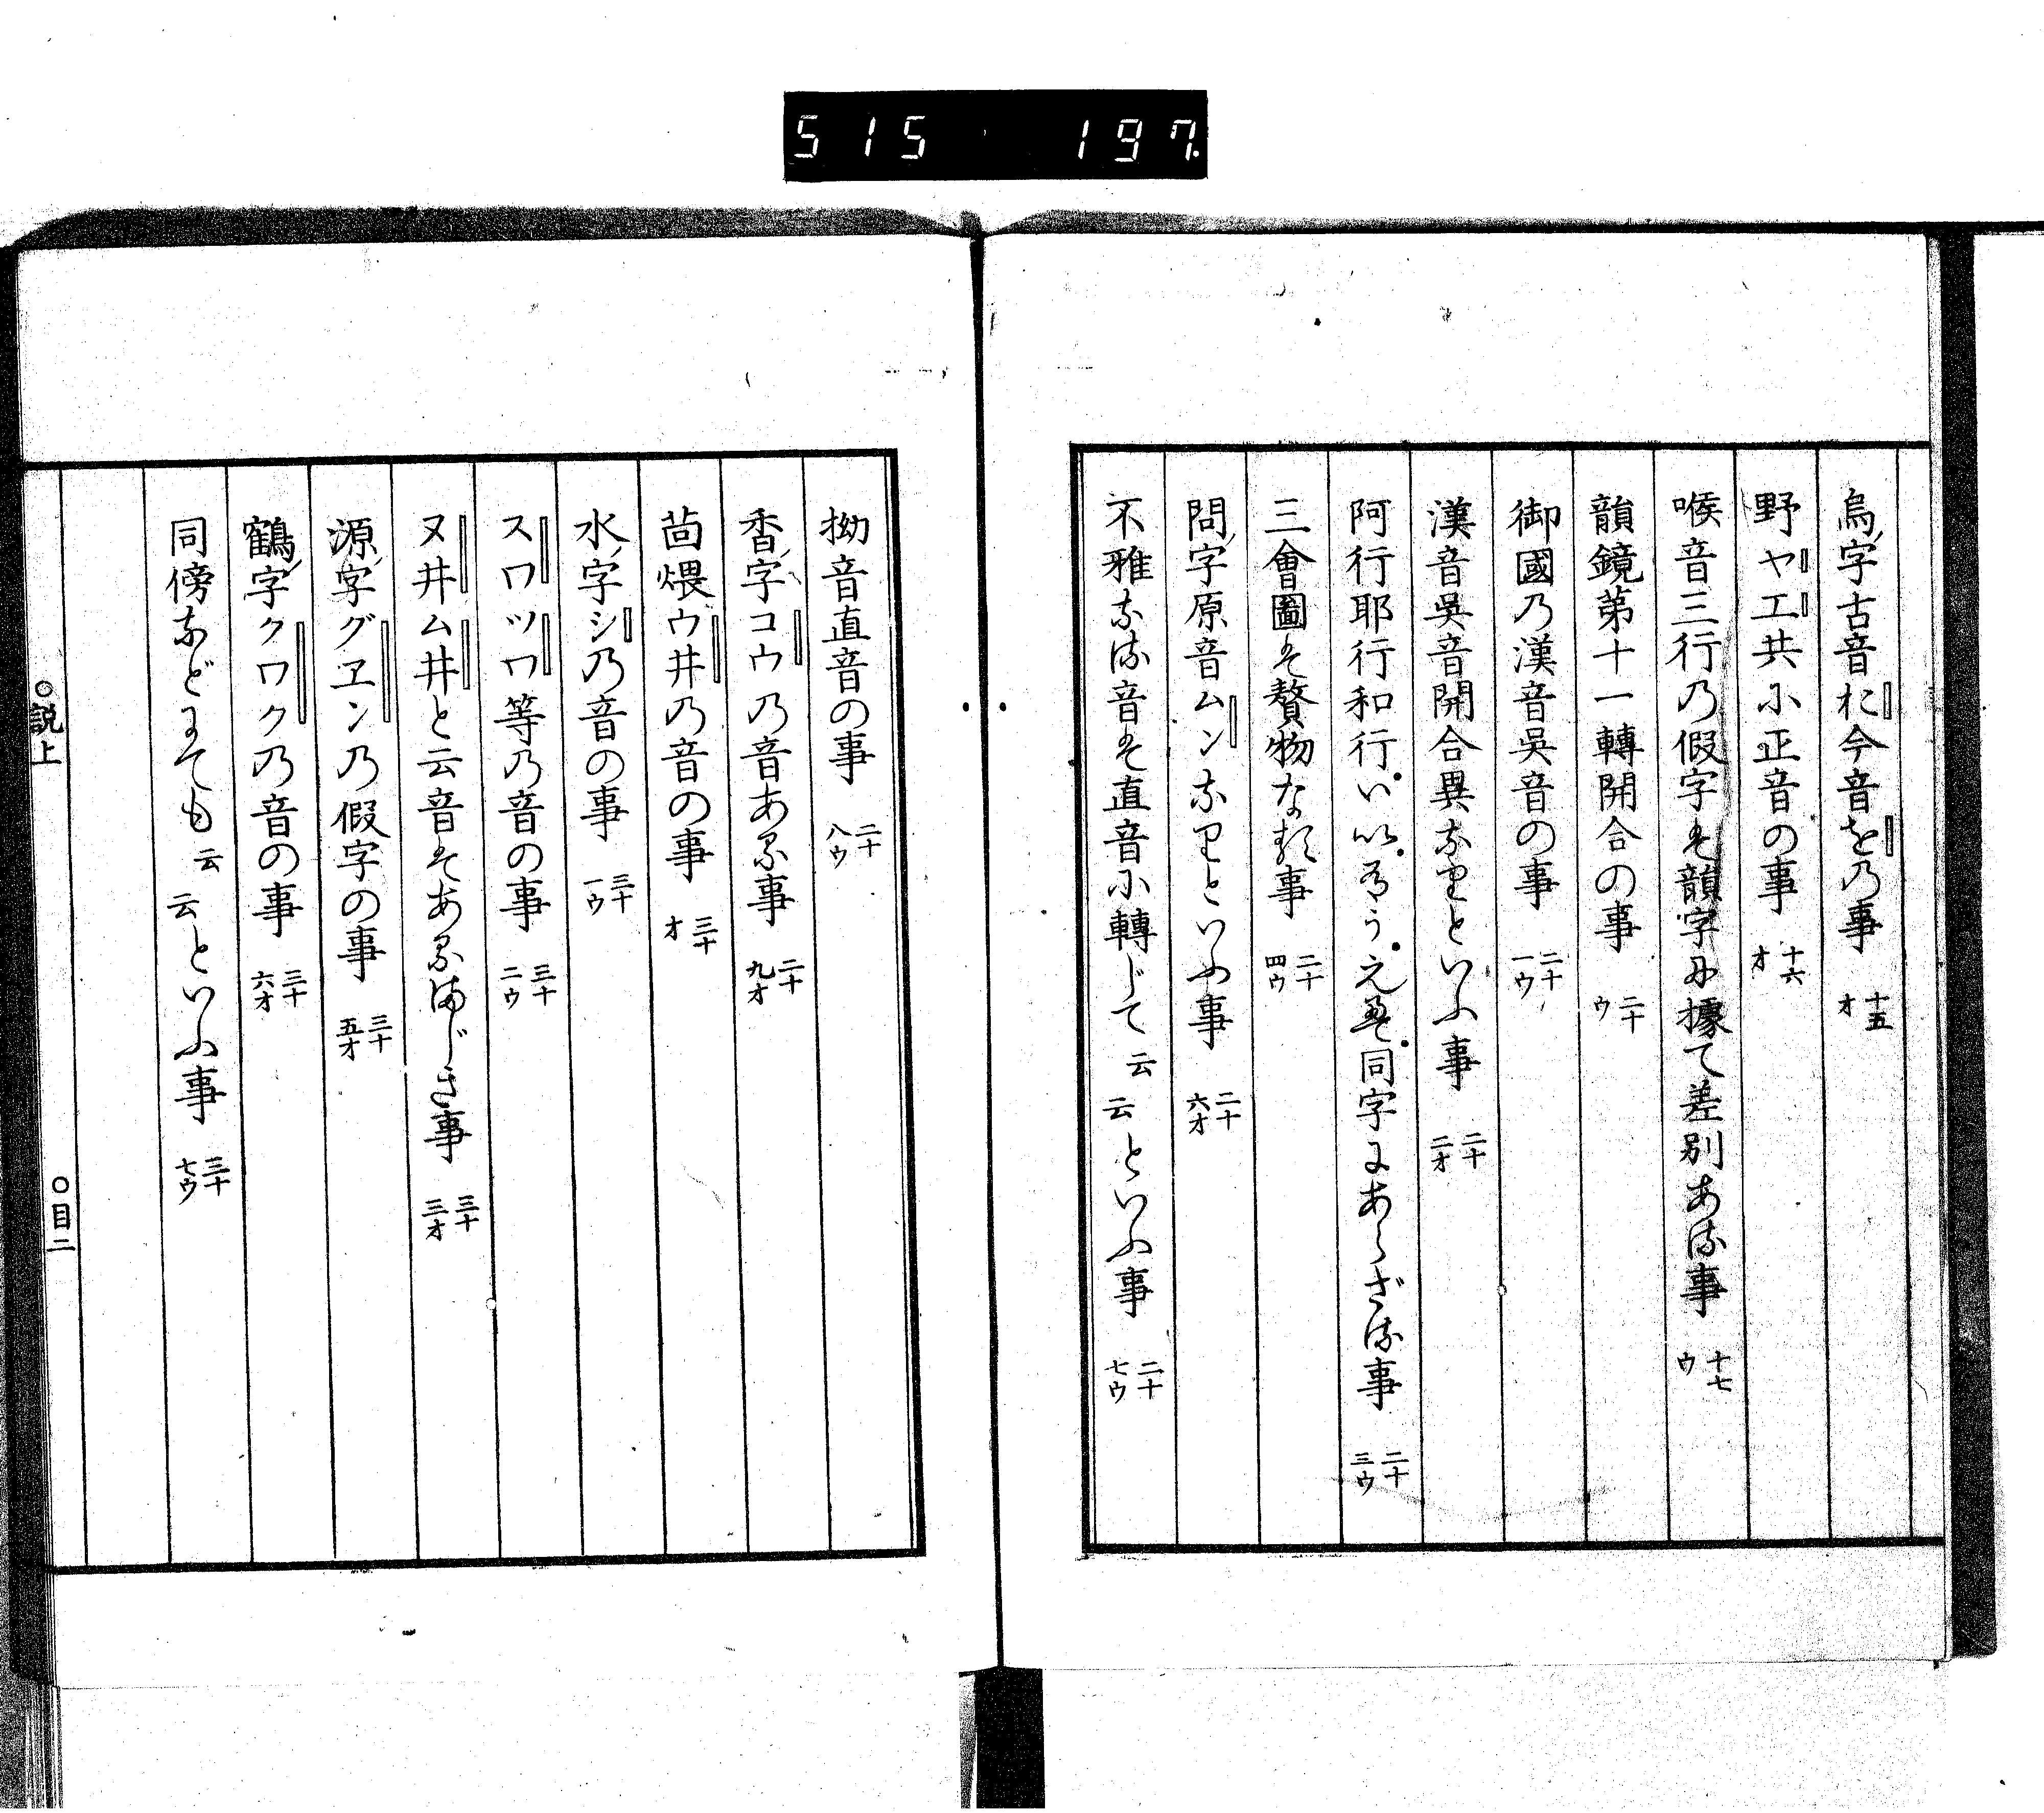 515 197
烏字古音お今音をの事 十五オ
野ヤエ共に正音の事 十六オ
喉音三行の假字は韻字に據て差別ある事 十七ウ
韻鏡第十一轉開合の事 二十ウ
御國の漢音呉音の事 二十一ウ
漢音呉音開合異なりといふ事 二十二オ
阿行耶行和行い
同字にあらざる事 二十三ウ
三會圖は贅物なる事 二十四ウ
問字原音ムンなりといふ事 二十六オ
不雅なる音は直音に轉じて云云といふ事 二十七ウ
拗音直音の事 二十八ウ
香字コウの音ある事 二十九オ
茴煨ウ井の音の事 三十オ
水字シの音の事 三十一ウ
スワツワ等の音の事 三十二ウ
ヌ井ム井と云音はあるまじき事 三十三オ
源字グヱンの假字の事 三十五オ
鶴字クワクの音の事 三十六オ
同傍などにても云云といふ事 三十七ウ
○説上 ○目二